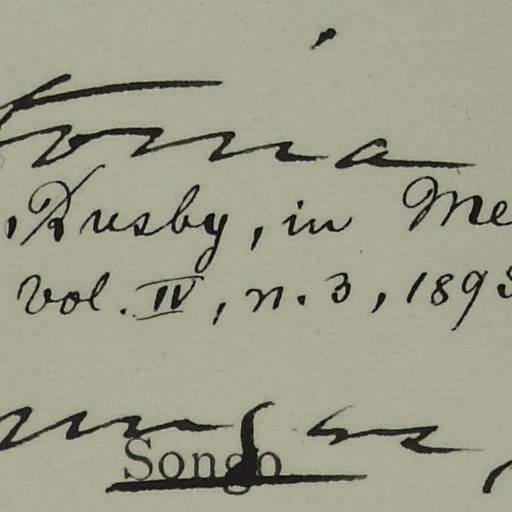 toria
, Rusby, in Me
vol. IV, n. 3, 1893
Songo